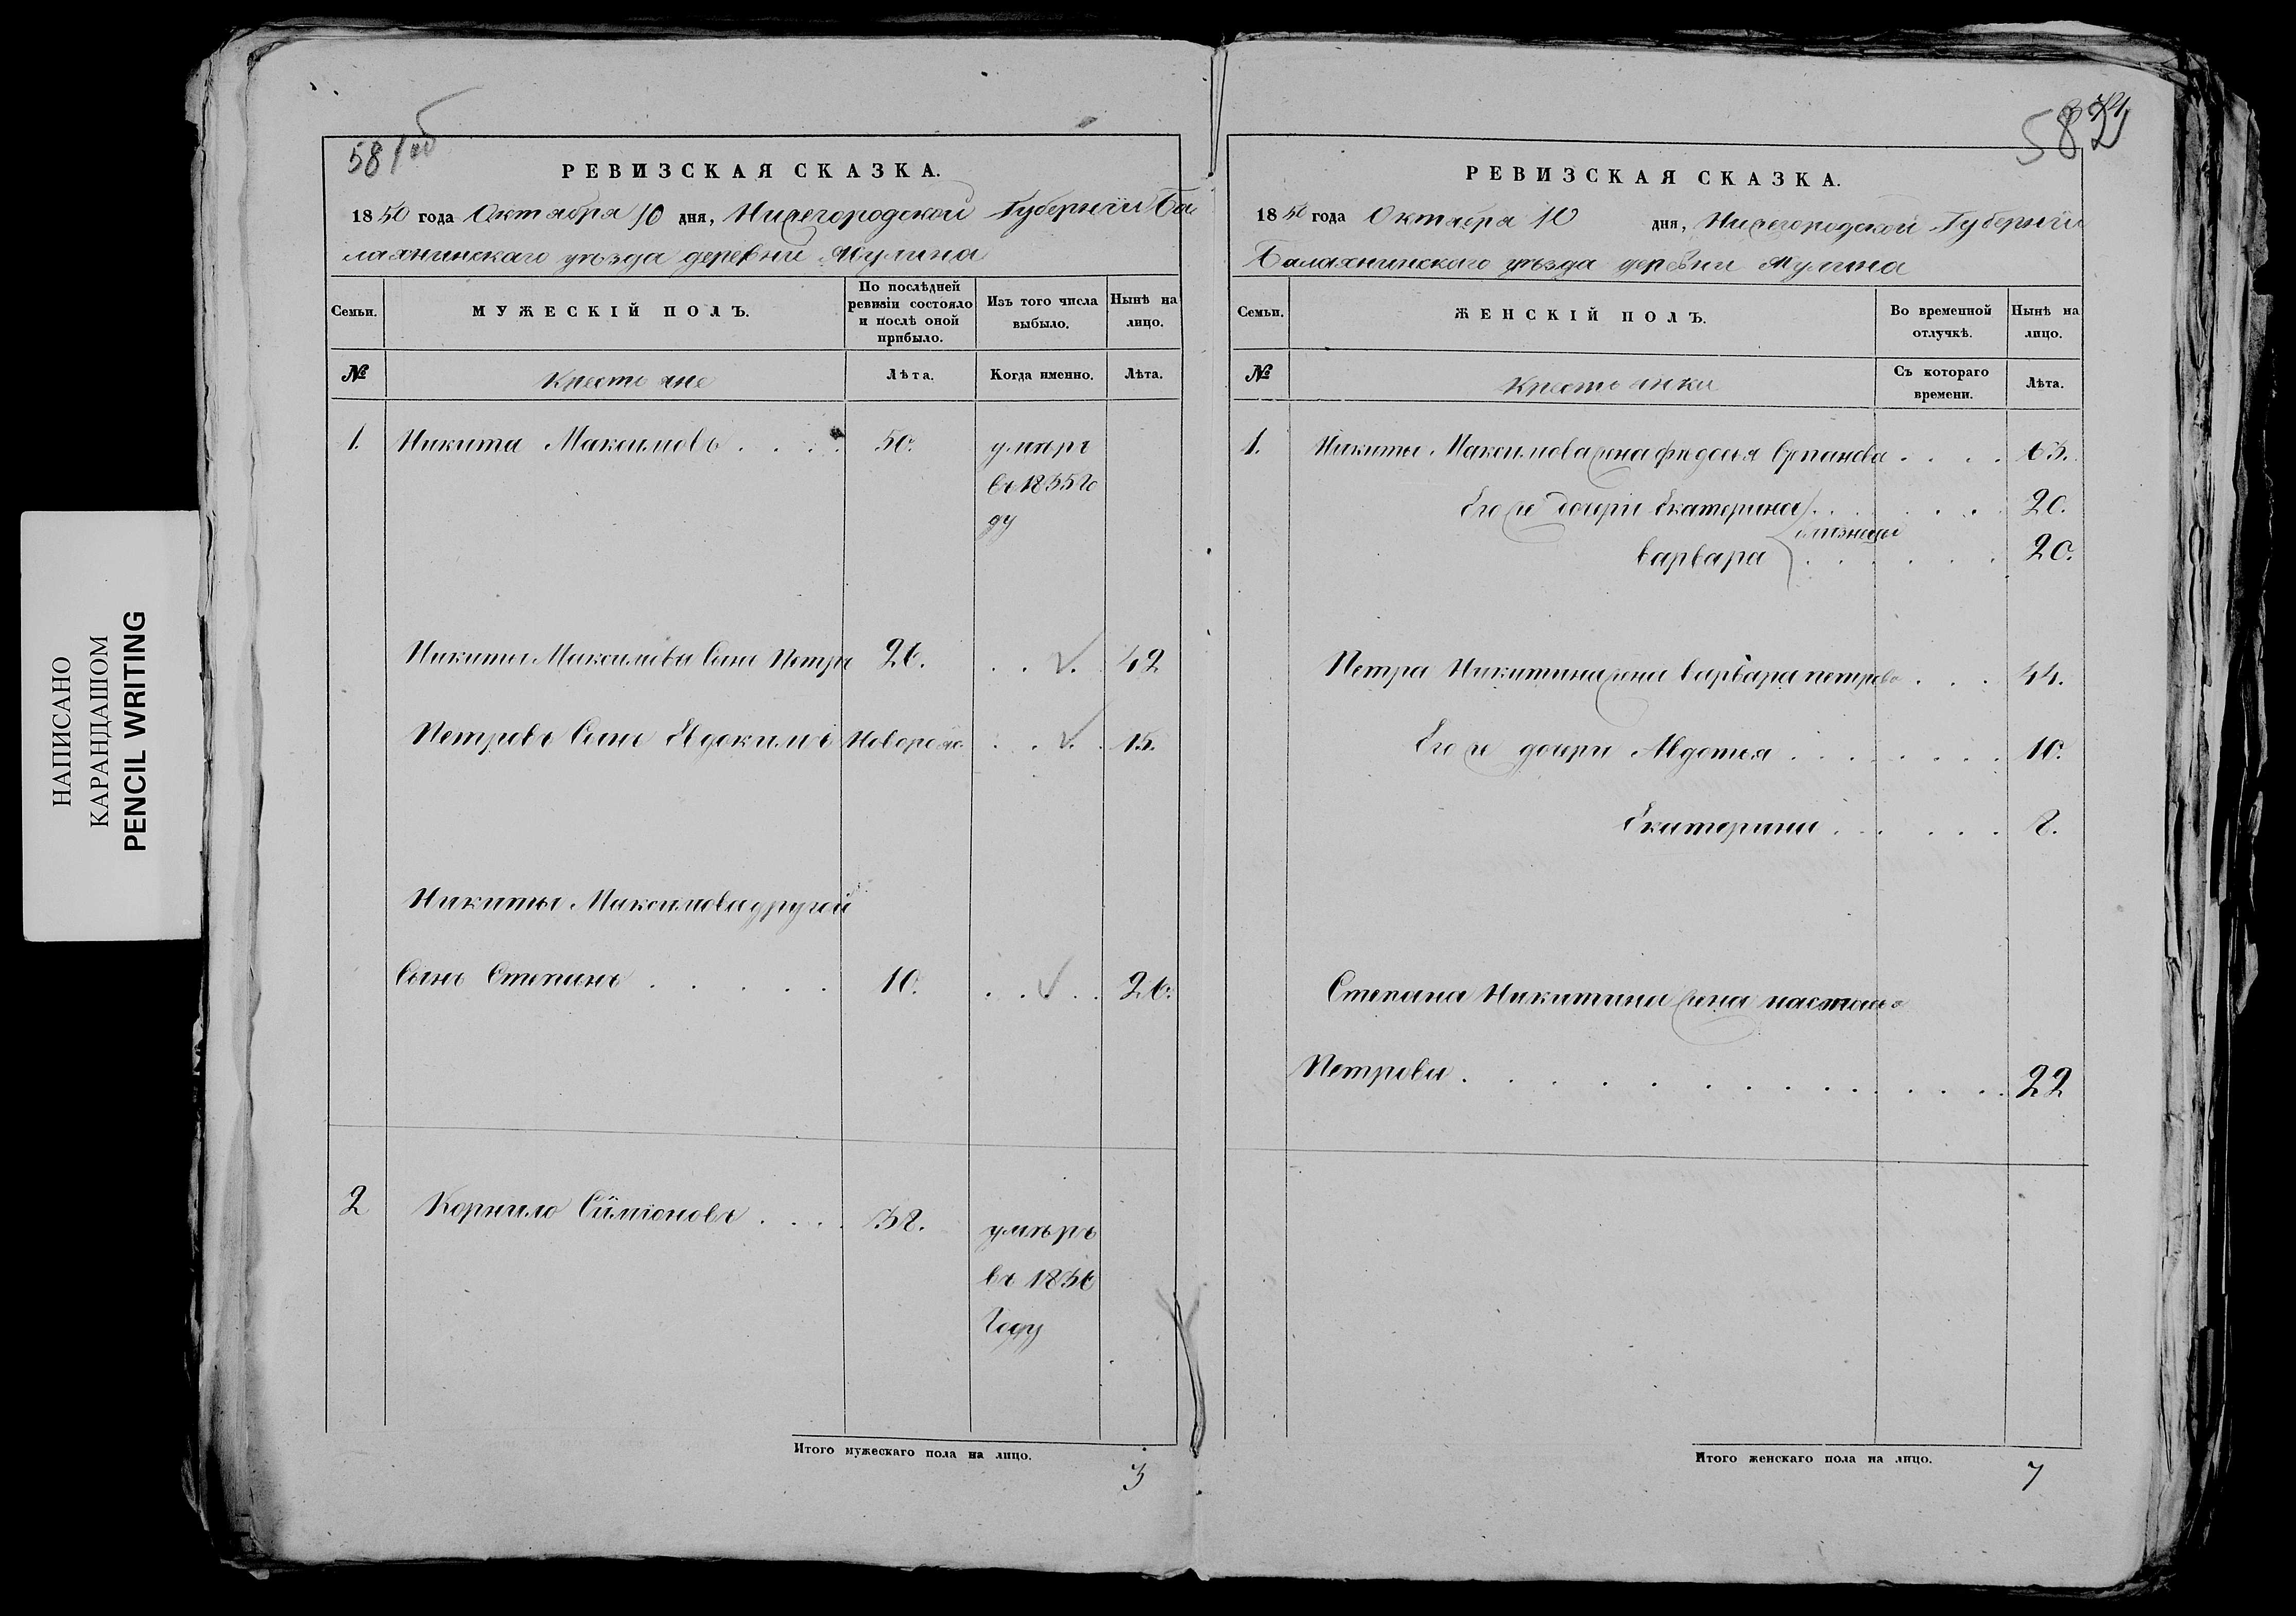 НАПИСАНО
КАРАНДАШОМ
PENCIL WRITING
581об
РЕВИЗСКАЯ СКАЗКА.
1850 года Октября 10 дня, Нижегородской Губернiи Ба
лахнинскаго уѣзда деревни Мулина
Семьи.
МУЖЕСКІЙ ПОЛЪ.
По послѣдней
ревизіи состояло
и послѣ оной
прибыло.
Изъ того числа
выбыло.
Нынѣ на
лицо.
№
Крестьяне
Лѣта.
Когда именно.
Лѣта.
1. Никита Максимовъ . . . . 50. умѣръ
въ 1835 го
ду
Никиты Максимова Сынъ Петръ 26. . . . 42
Петровъ Сынъ Евдокимъ Новорож. . . . 15.
Никиты Максимова другой
Сынъ Степанъ . . . . . 10. . . . 26.
2 Корнило Симiоновъ . . . . 38. умѣръ
въ 1836
Году
Итого мужескаго пола на лицо.
3
582
РЕВИЗСКАЯ СКАЗКА.
1850 года Октября 10 дня, Нижегородской Губернiи
Балахнинскаго уѣзда деревни Мулина
Семьи.
ЖЕНСКІЙ ПОЛЪ.
Во временной
отлучкѣ.
Нынѣ на
лицо.
№
Крестьянки
Съ котораго
времени.
Лѣта.
1. Никиты Максимова жена Федосья . . . . 63.
Его же дочери Екатерина . . . . . 20.
близнецы
Варвара . . . . . . 20.
Петра Никитина жена Варвара Петрова . . . 44.
Его же дочери Авдотья . . . . . . . . 10.
Екатерина . . . . . . 8.
Степана Никитина жена Настасья
Петрова . . . . . . . . . . . . . 22
Итого женскаго пола на лицо.
7